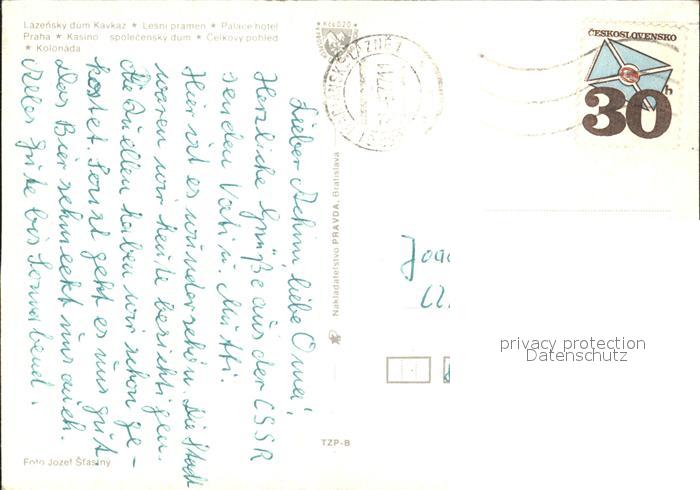 Lazeňský dům Kavkaz ★ Lesní pramen ★ Palace hotel
Praha ★ Kasino společenský dum ★ Celkový pohled
★ Kolonáda
Kčs 0,20
ČESKOSLOVENSKO
30h
Lieber Achim, liebe Oma!
Herzliche Grüße aus der CSSR
senden Vati u. Mutti.
Hier ist es wunderschön. Die Stadt
waren wir heute besichtigen.
Die Quellen haben wir schon ge-
kostet. Sonst geht es uns gut.
Das Bier schmeckt uns auch.
Alles Gute bis Sonnabend.
Nakladatelstvo PRAVDA, Bratislava
privacy protection
Datenschutz
TZP-B
Foto Jozef Šťastný